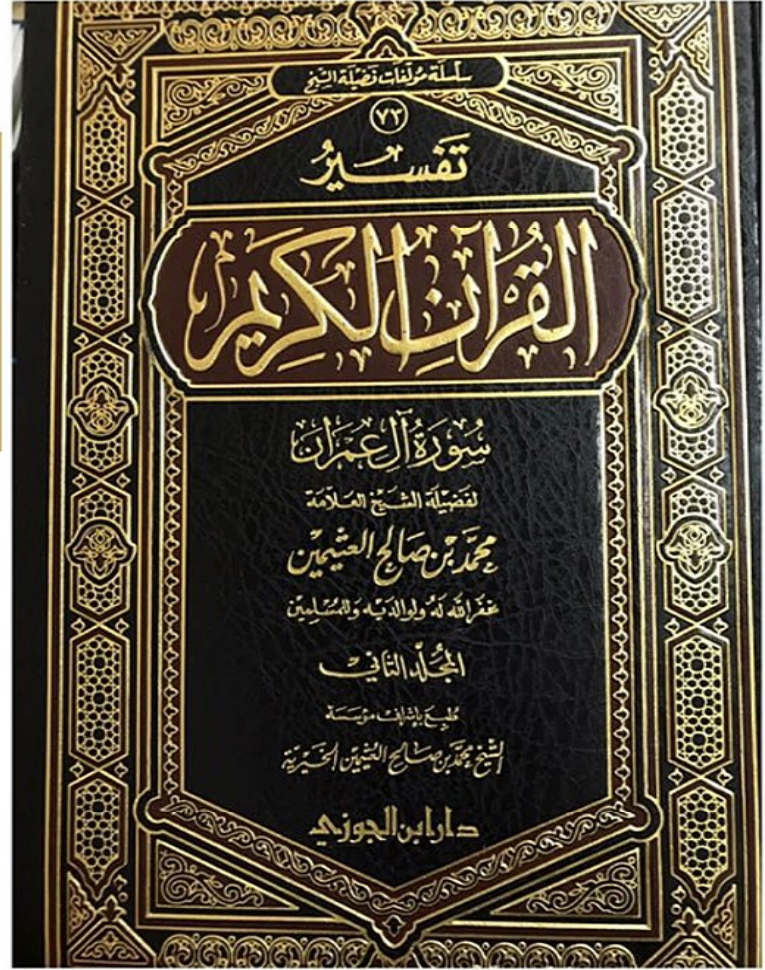 سلسلة مؤلفات فضيلة الشيخ
٧٣
تفسير
القرآن الكريم
سورة آل عمران
لفضيلة الشيخ العلامة
محمد بن صالح العثيمين
غفر الله له ولوالديه وللمسلمين
المجلد الثاني
طبع بإشراف مؤسسة
الشيخ محمد بن صالح العثيمين الخيرية
دار ابن الجوزي